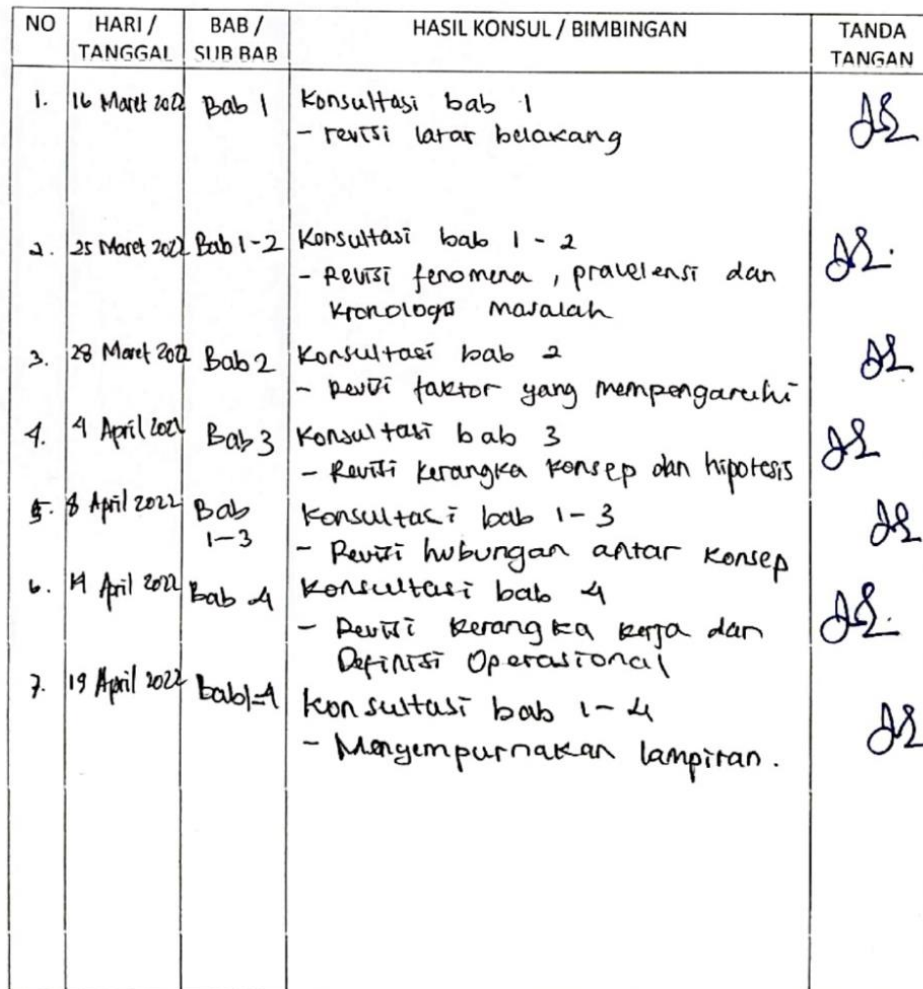 NO HARI / TANGGAL BAB / SUB BAB HASIL KONSUL / BIMBINGAN TANDA TANGAN
1. 16 Maret 2022 Bab 1 Konsultasi bab 1
- revisi latar belakang
2. 25 Maret 2022 Bab 1-2 Konsultasi bab 1 - 2
- Revisi fenomena, pravelensi dan
kronologis masalah
3. 28 Maret 2022 Bab 2 Konsultasi bab 2
- Revisi faktor yang mempengaruhi
4. 4 April 2022 Bab 3 Konsultasi bab 3
- Revisi kerangka konsep dan hipotesis
5. 8 April 2022 Bab 1-3 Konsultasi bab 1-3
- Revisi hubungan antar konsep
6. 14 April 2022 Bab 4 Konsultasi bab 4
- Revisi kerangka kerja dan
Definisi Operasional
7. 19 April 2022 bab 1-4 Konsultasi bab 1-4
- Menyempurnakan lampiran.